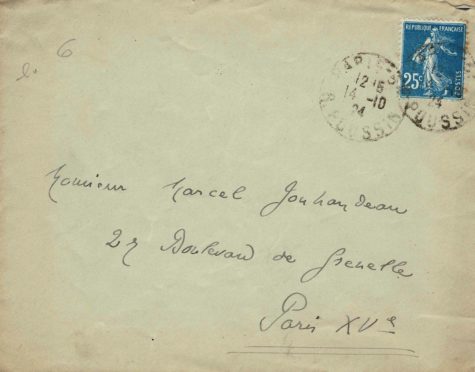 6
REPUBLIQUE FRANÇAISE
25c
POSTES
PARIS
12 15
14 -10
24
R. POUSSIN
24
POUSSIN
Monsieur Marcel Jouhandeau
27 Boulevard de Grenelle
Paris XVe